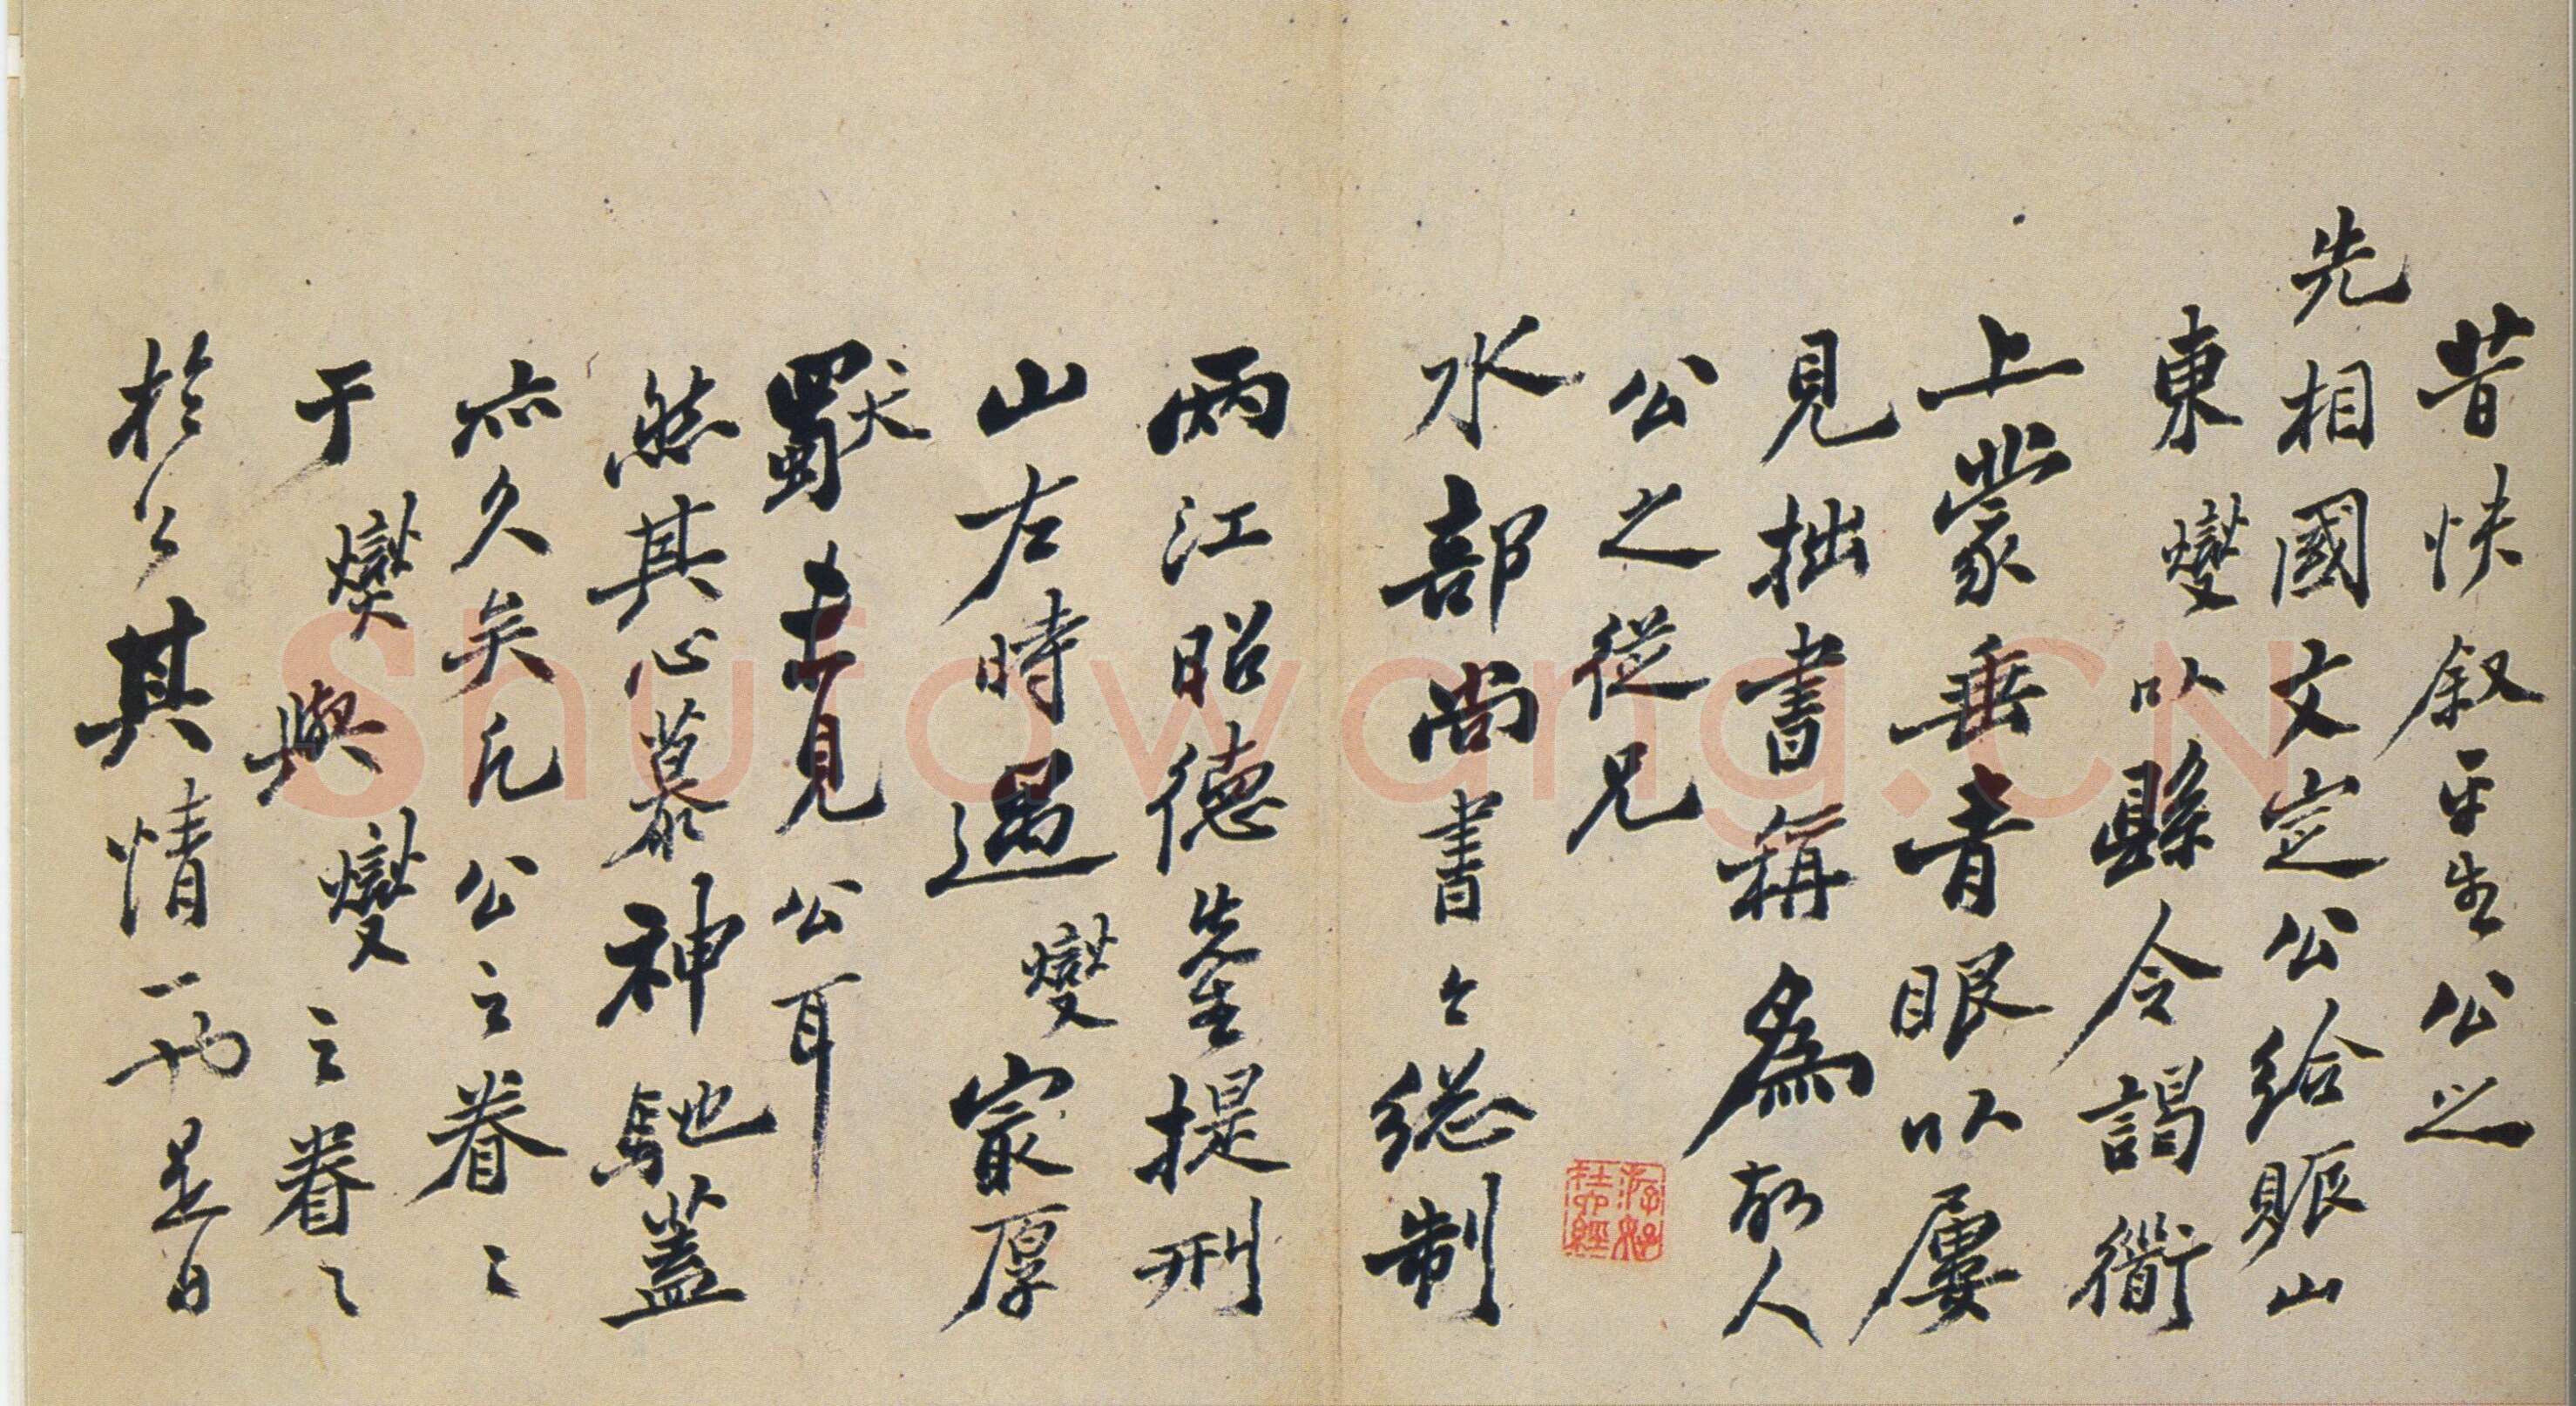 昔快叙平生公之
先相國文定公給賑山
東燮以縣令謁衙
上蒙垂青眼以屢
見拙書稱為故人
公之從兄
水部尚書々總制
兩江昭德先生提刑
山左時遇燮寂厚
獸未見公耳
然其心慕神馳蓋
亦久矣凡公之眷々
于燮與燮之眷々
於公其情一也是日
Shufawang.CN